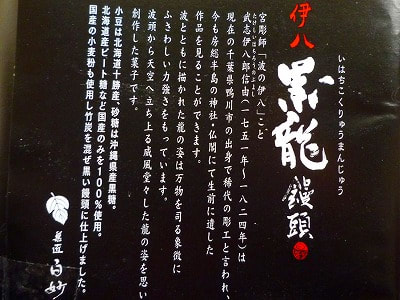 いはちこくりゅうまんじゅう
伊八
黒龍
饅頭
宮彫師「波の伊八」こと
武志伊八郎信由（一七五一年〜一八二四年）は
たけしいはちろうのぶよし
現在の千葉県鴨川市の出身で稀代の彫工と言われ、
今も房総半島の神社・仏閣にて生前に遺した
作品を見ることができます。
波とともに描かれた龍の姿は万物を司る象徴に
ふさわしい力強さをもっています。
波頭から天空へ立ち上る威風堂々した龍の姿を思い
創作した菓子です。
小豆は北海道十勝産、砂糖は沖縄県産黒糖。
北海道産ビート糖など国産のみを100%使用。
国産の小麦粉も使用し竹炭を混ぜ黒い饅頭に仕上げました。
菓匠 白妙